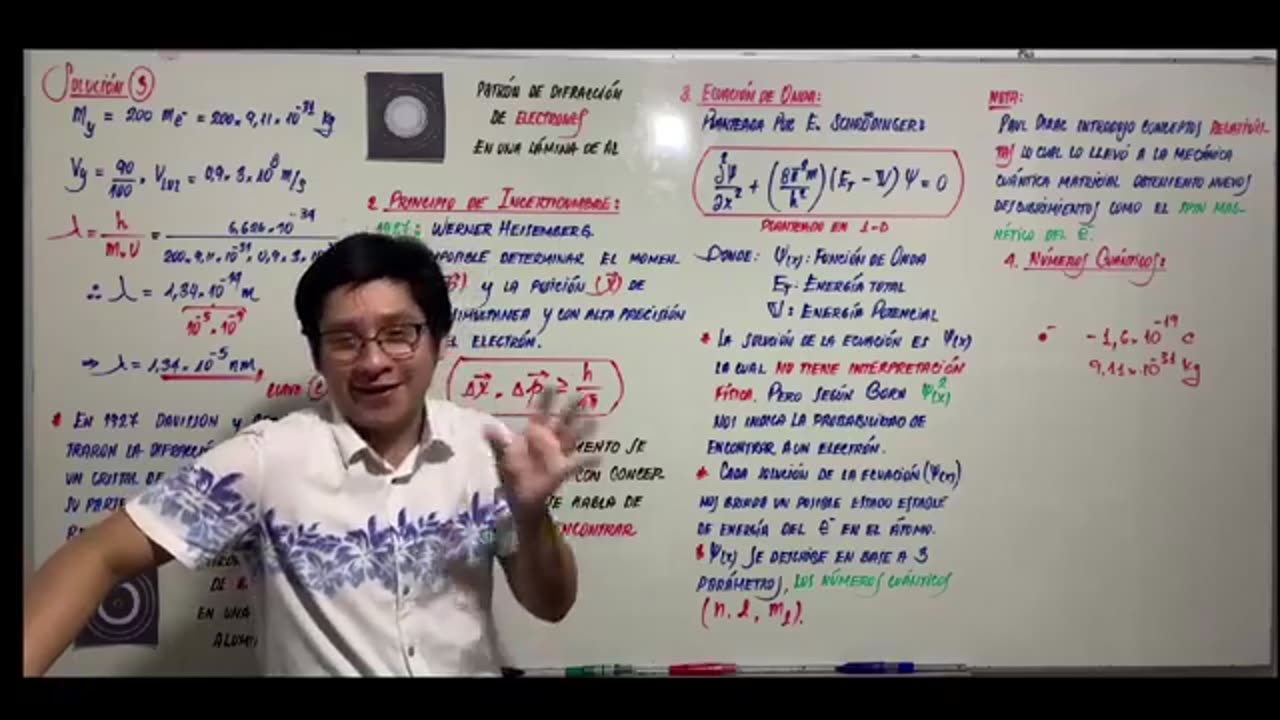 SOLUCIÓN 3
My = 200 me⁻ = 200 × 9,11 × 10⁻³¹ kg
Vy = 90/100 × VLUZ = 0,9 × 3 × 10⁸ m/s
λ = h/m.v = 6,626×10⁻³⁴ / 200×9,11×10⁻³¹×0,9×3×10
∴ λ = 1,34×10⁻¹⁴ m
10⁻⁵ × 10⁻⁹
⇒ λ = 1,34×10⁻⁵ nm
* EN 1927 DAVISSON Y
TRARON LA DIFRACC
UN CRISTAL DE
SU PARTE
PATRÓN DE DIFRACCIÓN
DE ELECTRONES
EN UNA LÁMINA DE Al
2. PRINCIPIO DE INCERTIDUMBRE:
1927: WERNER HEISENBERG
DETERMINAR EL MOMEN
Y LA POSICIÓN (x⃗) DE
Y CON ALTA PRECISIÓN
EL ELECTRÓN.
Δx⃗ . Δp⃗ ≥ h/4π
SE
CON CONCER
SE HABLA DE
ENCONTRAR
DE
EN UNA
ALUMI
3. ECUACIÓN DE ONDA:
PLANTEADA POR E. SCHRÖDINGER:
∂²Ψ/∂x² + (8π²m/h²)(E_T − V)Ψ = 0
PLANTEADO EN 1-D
DONDE: Ψ(x): FUNCIÓN DE ONDA
E_T: ENERGÍA TOTAL
V: ENERGÍA POTENCIAL
* LA SOLUCIÓN DE LA ECUACIÓN ES Ψ(x)
LA CUAL NO TIENE INTERPRETACIÓN
FÍSICA. PERO SEGÚN BORN Ψ²(x)
NOS INDICA LA PROBABILIDAD DE
ENCONTRAR A UN ELECTRÓN.
* CADA SOLUCIÓN DE LA ECUACIÓN (Ψ(x))
NOS BRINDA UN POSIBLE ESTADO ESTABLE
DE ENERGÍA DEL e⁻ EN EL ÁTOMO.
* Ψ(x) SE DESCRIBE EN BASE A 3
PARÁMETROS, LOS NÚMEROS CUÁNTICOS
(n, l, m_l).
NOTA:
PAUL DIRAC INTRODUJO CONCEPTOS RELATIVIS-
TAS LO CUAL LO LLEVÓ A LA MECÁNICA
CUÁNTICA MATRICIAL OBTENIENDO NUEVOS
DESCUBRIMIENTOS COMO EL SPIN MAG-
NÉTICO DEL e⁻.
4. NÚMEROS CUÁNTICOS:
e⁻ -1,6×10⁻¹⁹ C
9,11×10⁻³¹ kg